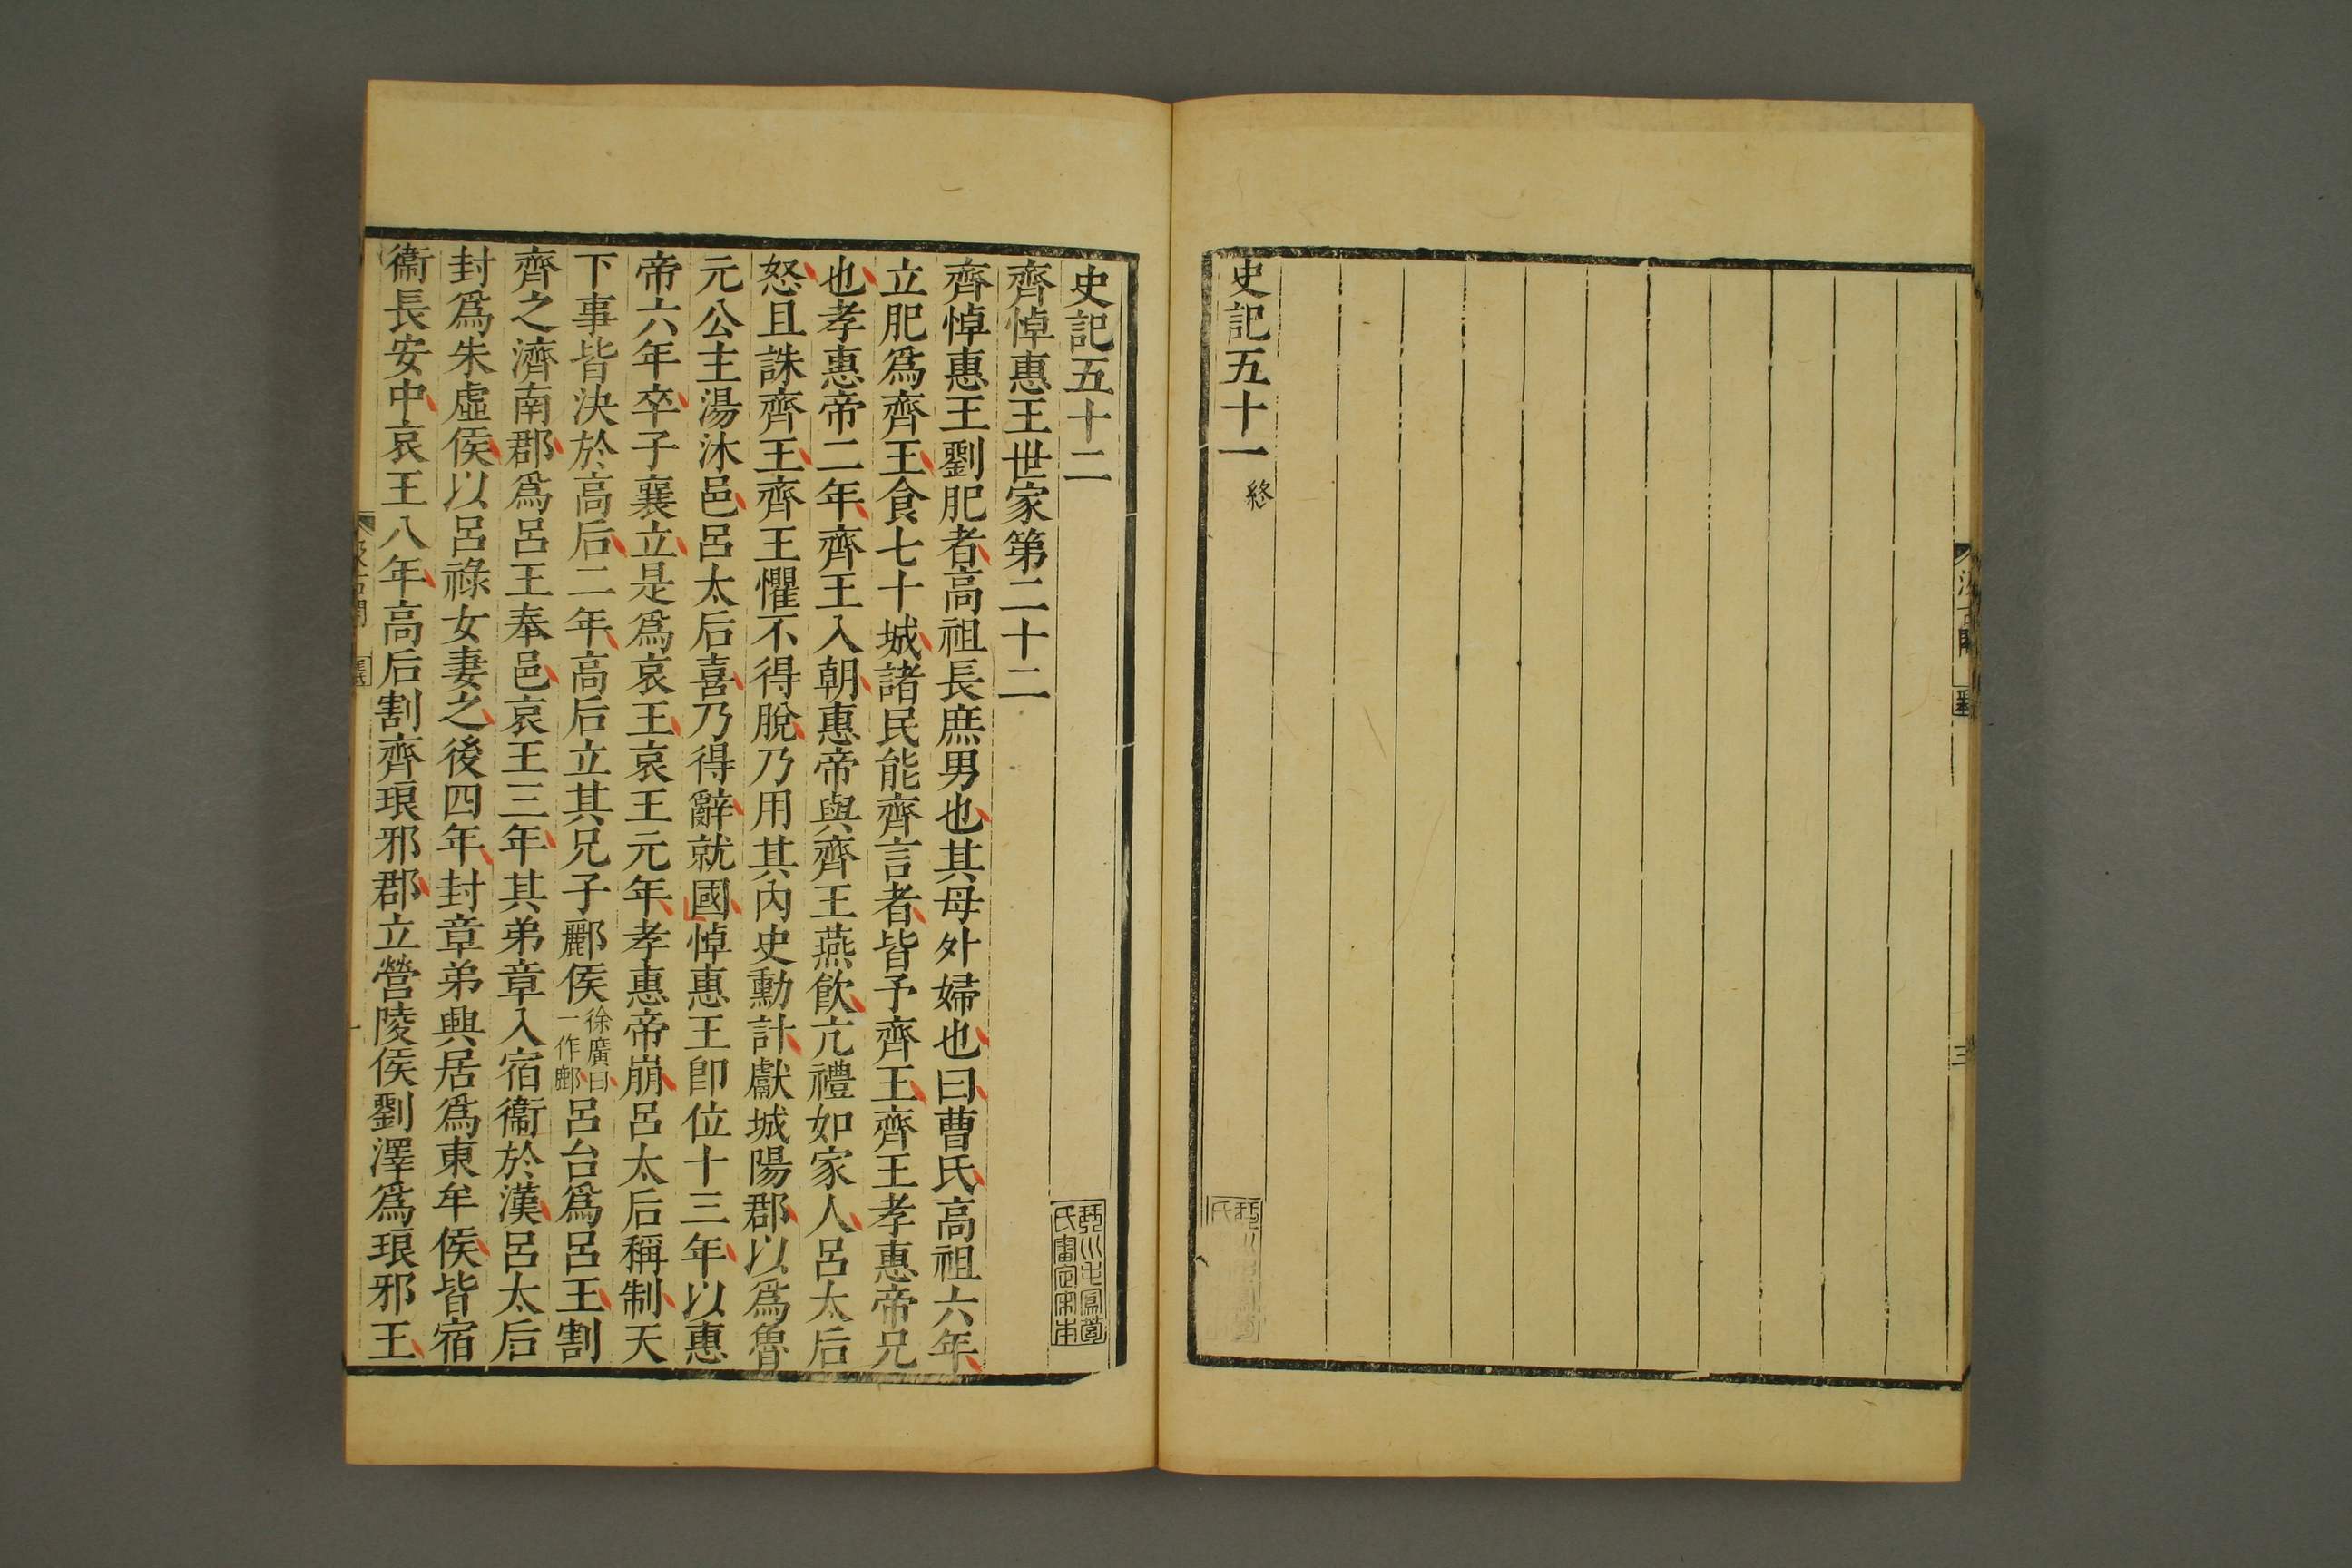 史記五十一 終
汲古閣
三
史記五十二
齊悼惠王世家第二十二
齊悼惠王劉肥者高祖長庶男也其母外婦也曰曹氏高祖六年
立肥爲齊王食七十城諸民能齊言者皆予齊王齊王孝惠帝兄
也孝惠帝二年齊王入朝惠帝與齊王燕飲亢禮如家人呂太后
怒且誅齊王齊王懼不得脫乃用其內史勳計獻城陽郡以爲魯
元公主湯沐邑呂太后喜乃得辭就國悼惠王卽位十三年以惠
帝六年卒子襄立是爲哀王哀王元年孝惠帝崩呂太后稱制天
下事皆決於高后二年高后立其兄子酈侯徐廣曰一作鄜呂台爲呂王割
齊之濟南郡爲呂王奉邑哀王三年其弟章入宿衞於漢呂太后
封爲朱虛侯以呂祿女妻之後四年封章弟興居爲東牟侯皆宿
衞長安中哀王八年高后割齊琅邪郡立營陵侯劉澤爲琅邪王
汲古閣